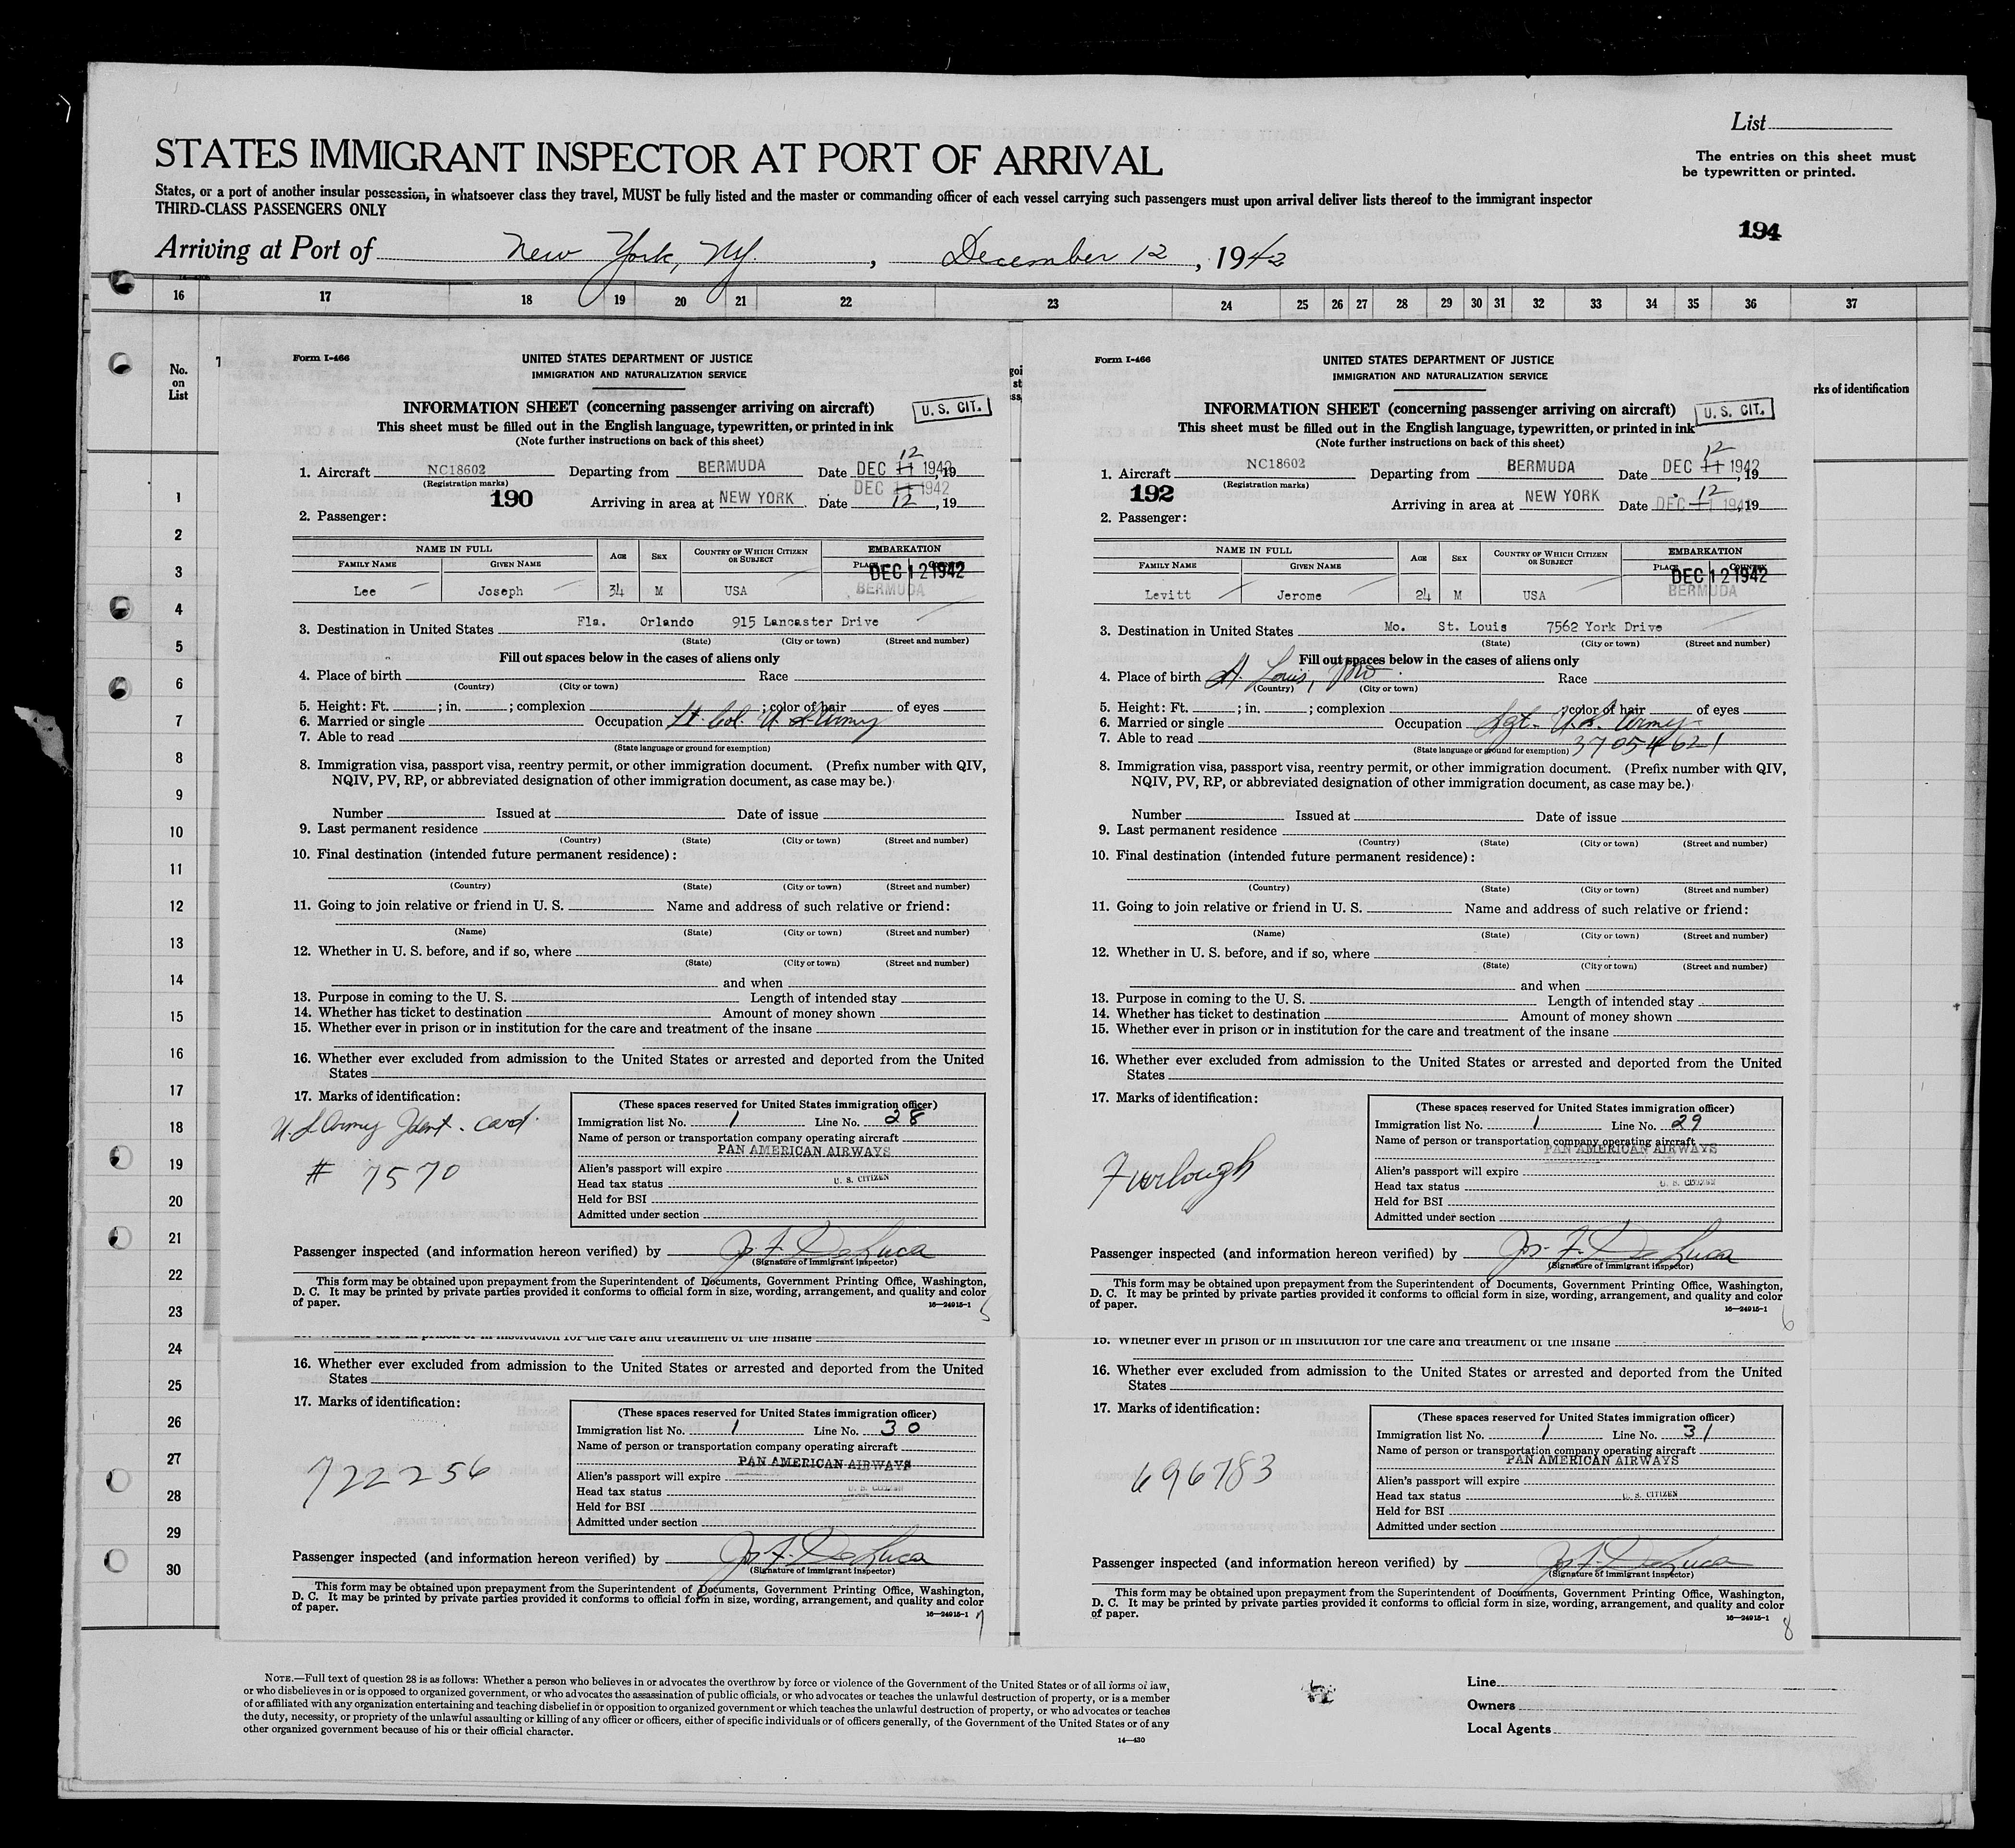 List
STATES IMMIGRANT INSPECTOR AT PORT OF ARRIVAL
The entries on this sheet must
be typewritten or printed.
States, or a port of another insular possession, in whatsoever class they travel, MUST be fully listed and the master or commanding officer of each vessel carrying such passengers must upon arrival deliver lists thereof to the immigrant inspector
THIRD-CLASS PASSENGERS ONLY
194
Arriving at Port of New York, NY. , December 12 , 1942
16 17 18 19 20 21 22 23 24 25 26 27 28 29 30 31 32 33 34 35 36 37
No.
on
List
rks of identification
1
2
3
4
5
6
7
8
9
10
11
12
13
14
15
16
17
18
19
20
21
22
23
24
25
26
27
28
29
30
Form I-466
UNITED STATES DEPARTMENT OF JUSTICE
IMMIGRATION AND NATURALIZATION SERVICE
INFORMATION SHEET (concerning passenger arriving on aircraft)
U. S. CIT.
This sheet must be filled out in the English language, typewritten, or printed in ink
(Note further instructions on back of this sheet)
12
1. Aircraft NC18602 Departing from BERMUDA Date DEC 11 1942, 19
(Registration marks)
DEC 11 1942
190 Arriving in area at NEW YORK Date 12, 19
2. Passenger:
NAME IN FULL AGE SEX COUNTRY OF WHICH CITIZEN OR SUBJECT EMBARKATION
FAMILY NAME GIVEN NAME PLACE COUNTRY
DEC 12 1942
Lee Joseph 34 M USA BERMUDA
3. Destination in United States Fla. Orlando 915 Lancaster Drive
(State) (City or town) (Street and number)
Fill out spaces below in the cases of aliens only
4. Place of birth Race
(Country) (City or town)
5. Height: Ft. ; in. ; complexion ; color of hair of eyes
6. Married or single Occupation Lt. Col. U S Army
7. Able to read
(State language or ground for exemption)
8. Immigration visa, passport visa, reentry permit, or other immigration document. (Prefix number with QIV,
NQIV, PV, RP, or abbreviated designation of other immigration document, as case may be.)
Number Issued at Date of issue
9. Last permanent residence
(Country) (State) (City or town) (Street and number)
10. Final destination (intended future permanent residence):
(Country) (State) (City or town) (Street and number)
11. Going to join relative or friend in U. S. Name and address of such relative or friend:
(Name) (State) (City or town) (Street and number)
12. Whether in U. S. before, and if so, where
(State) (City or town) (Street and number)
and when
13. Purpose in coming to the U. S. Length of intended stay
14. Whether has ticket to destination Amount of money shown
15. Whether ever in prison or in institution for the care and treatment of the insane
16. Whether ever excluded from admission to the United States or arrested and deported from the United
States
17. Marks of identification:
U.S Army Ident. card.
# 7570
(These spaces reserved for United States immigration officer)
Immigration list No. 1 Line No. 28
Name of person or transportation company operating aircraft
PAN AMERICAN AIRWAYS
Alien's passport will expire
Head tax status U. S. CITIZEN
Held for BSI
Admitted under section
Passenger inspected (and information hereon verified) by Jos. F. DeLuca
(Signature of immigrant inspector)
This form may be obtained upon prepayment from the Superintendent of Documents, Government Printing Office, Washington,
D. C. It may be printed by private parties provided it conforms to official form in size, wording, arrangement, and quality and color
of paper.
16—24915-1
5
Form I-466
UNITED STATES DEPARTMENT OF JUSTICE
IMMIGRATION AND NATURALIZATION SERVICE
INFORMATION SHEET (concerning passenger arriving on aircraft)
U. S. CIT.
This sheet must be filled out in the English language, typewritten, or printed in ink
(Note further instructions on back of this sheet)
12
1. Aircraft NC18602 Departing from BERMUDA Date DEC 11 1942, 19
(Registration marks)
12
192 Arriving in area at NEW YORK Date DEC 11 1942, 19
2. Passenger:
NAME IN FULL AGE SEX COUNTRY OF WHICH CITIZEN OR SUBJECT EMBARKATION
FAMILY NAME GIVEN NAME PLACE COUNTRY
DEC 12 1942
Levitt Jerome 24 M USA BERMUDA
3. Destination in United States Mo. St. Louis 7562 York Drive
(State) (City or town) (Street and number)
Fill out spaces below in the cases of aliens only
4. Place of birth St. Louis, Mo. Race
(Country) (City or town)
5. Height: Ft. ; in. ; complexion ; color of hair of eyes
6. Married or single Occupation Sgt. U.S. Army
7. Able to read 37054621
(State language or ground for exemption)
8. Immigration visa, passport visa, reentry permit, or other immigration document. (Prefix number with QIV,
NQIV, PV, RP, or abbreviated designation of other immigration document, as case may be.)
Number Issued at Date of issue
9. Last permanent residence
(Country) (State) (City or town) (Street and number)
10. Final destination (intended future permanent residence):
(Country) (State) (City or town) (Street and number)
11. Going to join relative or friend in U. S. Name and address of such relative or friend:
(Name) (State) (City or town) (Street and number)
12. Whether in U. S. before, and if so, where
(State) (City or town) (Street and number)
and when
13. Purpose in coming to the U. S. Length of intended stay
14. Whether has ticket to destination Amount of money shown
15. Whether ever in prison or in institution for the care and treatment of the insane
16. Whether ever excluded from admission to the United States or arrested and deported from the United
States
17. Marks of identification:
Furlough
(These spaces reserved for United States immigration officer)
Immigration list No. 1 Line No. 29
Name of person or transportation company operating aircraft
PAN AMERICAN AIRWAYS
Alien's passport will expire
Head tax status U. S. CITIZEN
Held for BSI
Admitted under section
Passenger inspected (and information hereon verified) by Jos. F. DeLuca
(Signature of immigrant inspector)
This form may be obtained upon prepayment from the Superintendent of Documents, Government Printing Office, Washington,
D. C. It may be printed by private parties provided it conforms to official form in size, wording, arrangement, and quality and color
of paper.
16—24915-1
6
15. Whether ever in prison or in institution for the care and treatment of the insane
16. Whether ever excluded from admission to the United States or arrested and deported from the United
States
17. Marks of identification:
722256
(These spaces reserved for United States immigration officer)
Immigration list No. 1 Line No. 30
Name of person or transportation company operating aircraft
PAN AMERICAN AIRWAYS
Alien's passport will expire
Head tax status U. S. CITIZEN
Held for BSI
Admitted under section
Passenger inspected (and information hereon verified) by Jos. F. DeLuca
(Signature of immigrant inspector)
This form may be obtained upon prepayment from the Superintendent of Documents, Government Printing Office, Washington,
D. C. It may be printed by private parties provided it conforms to official form in size, wording, arrangement, and quality and color
of paper.
16—24915-1
7
15. Whether ever in prison or in institution for the care and treatment of the insane
16. Whether ever excluded from admission to the United States or arrested and deported from the United
States
17. Marks of identification:
696783
(These spaces reserved for United States immigration officer)
Immigration list No. 1 Line No. 31
Name of person or transportation company operating aircraft
PAN AMERICAN AIRWAYS
Alien's passport will expire
Head tax status U. S. CITIZEN
Held for BSI
Admitted under section
Passenger inspected (and information hereon verified) by Jos. F. DeLuca
(Signature of immigrant inspector)
This form may be obtained upon prepayment from the Superintendent of Documents, Government Printing Office, Washington,
D. C. It may be printed by private parties provided it conforms to official form in size, wording, arrangement, and quality and color
of paper.
16—24915-1
8
NOTE.—Full text of question 28 is as follows: Whether a person who believes in or advocates the overthrow by force or violence of the Government of the United States or of all forms of law,
or who disbelieves in or is opposed to organized government, or who advocates the assassination of public officials, or who advocates or teaches the unlawful destruction of property, or is a member
of or affiliated with any organization entertaining and teaching disbelief in or opposition to organized government or which teaches the unlawful destruction of property, or who advocates or teaches
the duty, necessity, or propriety of the unlawful assaulting or killing of any officer or officers, either of specific individuals or of officers generally, of the Government of the United States or of any
other organized government because of his or their official character.
14—430
Line
Owners
Local Agents